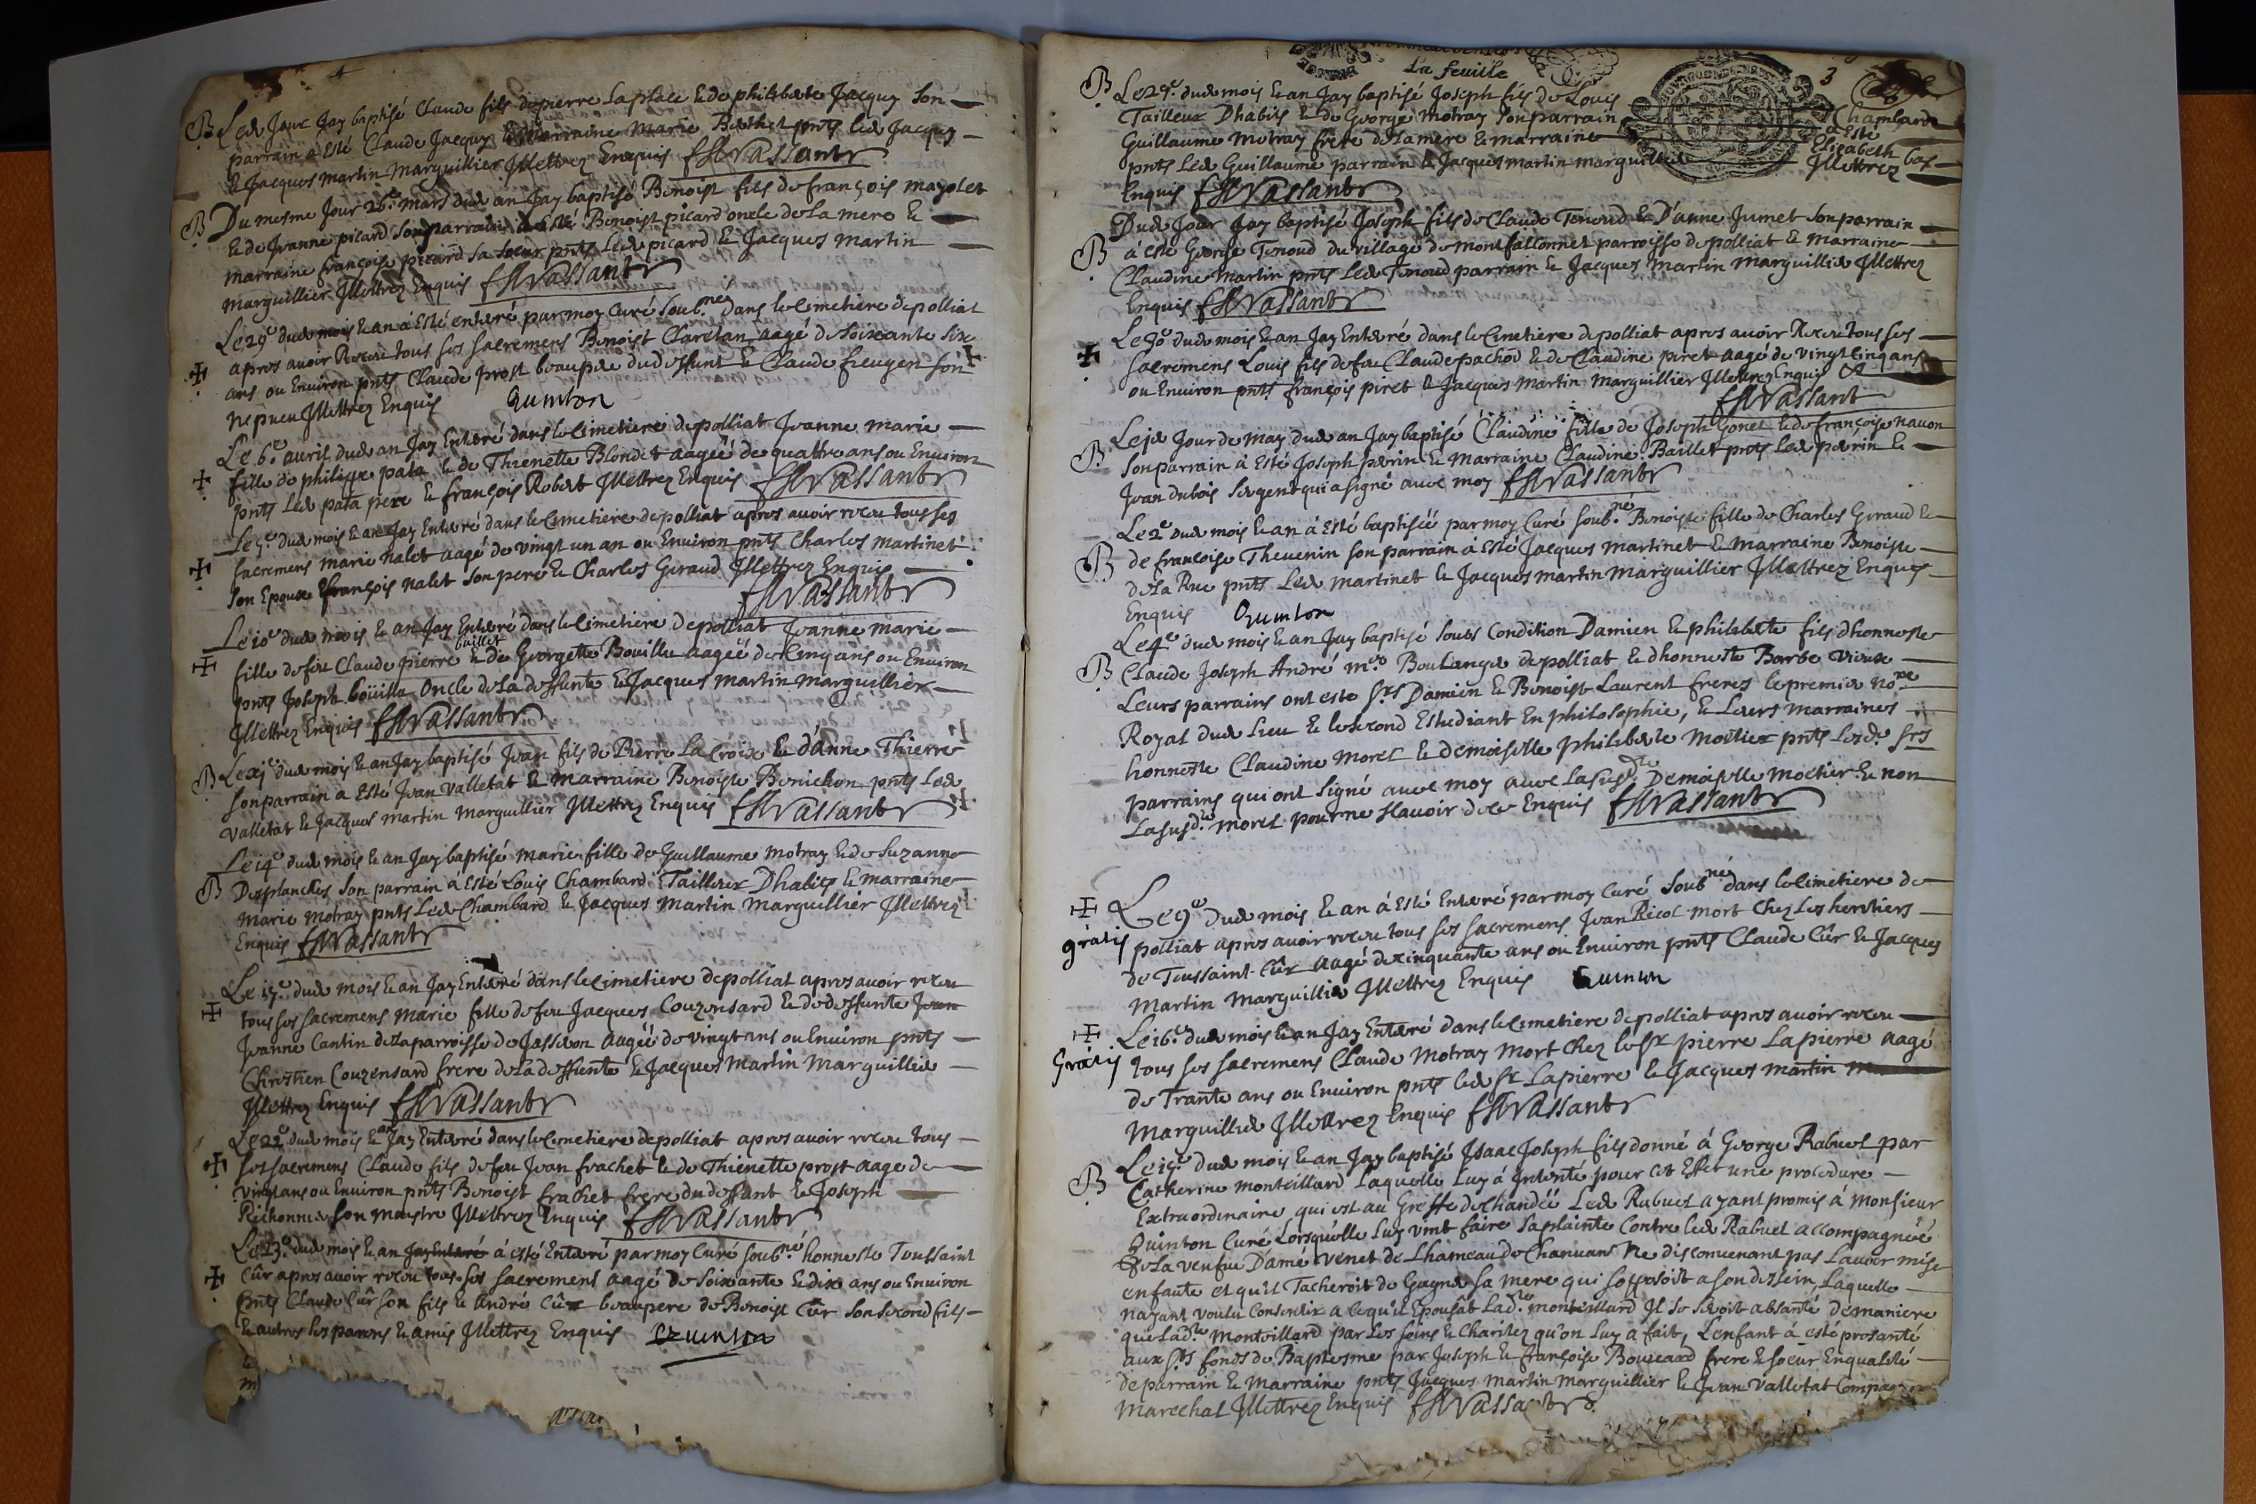 Led Jour Jay baptisé Claude fils de pierre Laplace & de philiberte Jacquy son
parrain a Esté Claude Jacquy & marraine Marie Berthet pnts led Jacquy
& Jacques Martin Marguillier Jllettrez Enquis
Du mesme Jour 26e mars dud an Jay baptisé Benoist fils de françois mazolet
& de Jeanne picard son parrain a Esté Benoist picard oncle de la mere &
marraine françoise picard sa soeur pnts Led picard & Jacques Martin
marguillier Jllettrez Enquis
Le 29e dud mois & an à Esté enterré par moy Curé soub.né dans le Cimetiere de polliat
apres avoir Receu tous ses sacremens Benoist Claretan aagé de soixante six
ans ou Environ pnts Claude prost beaupere du deffunt & Claude son
nepueu Jllettrez Enquis Quinton
Le 6e auril dud an Jay Enterré dans le Cimetiere de polliat Jeanne marie
fille de philippe pata & de Thienette Blondet aagée de quattre ans ou Environ
pnts Led pata pere & françois Robert Jllettrez Enquis
Le 7e dud mois & an Jay Enterré dans le Cimetiere de polliat apres auoir receu tous ses
sacremens marie nalet aagé de vingt un an ou Environ pnts Charles martinet
son Epoux françois nalet son pere & Charles Giraud Jllettrez Enquis
Le 10e dud mois & an Jay Enterré dans le Cimetiere de polliat Jeanne marie
baillet
fille de feu Claude pierre & de Georgette Bouilla aagée de Cinq ans ou Environ
pnts Joseph boüilla Oncle de la deffunte & Jacques Martin marguillier
Jllettrez Enquis
Le xje dud mois & an Jay baptisé Jean fils de Pierre La Croix & d'anne Thierre
son parrain a Esté Jean Valletat & marraine Benoiste Benichon pnts Led
Valletat & Jacques martin marguillier Jllettrez Enquis
Le 14e dud mois & an Jay baptisé marie fille de Guillaume motray & de Suzanne
Desplanches son parrain à Esté Louis Chambard Tailleur Dhabits & marraine
Marie motray pnts Led Chambard & Jacques Martin Marguillier Jllettrez
Enquis
Le 17e dud mois & an Jay Enterré dans le Cimetiere de polliat apres auoir receu
tous ses sacremens Marie fille de feu Jacques Couzensard & de deffunte Jean
Jeanne Cantin de la parroisse de Jasseron aagée de vingt ans ou Environ pnts
Chrestien Couzensard frere de la deffunte & Jacques Martin Marguillier
Jllettrez Enquis
Le 22e dud mois & an Jay Enterré dans le Cimetiere de polliat apres auoir receu tous
ses sacremens Claude fils de feu Jean frachet & de Thienette prost aage de
vingt ans ou Environ pnts Benoist frachet frere du deffunt & Joseph
Richonnier son maistre Jllettrez Enquis
Le 23e dud mois & an Jay Enterré à esté Enterré par moy Curé soub.né honneste Toussaint
Cûr apres auoir receu tous ses sacremens aagé de Soixante & dix ans ou Environ
pnts Claude Cûr son fils & André Cûr beaupere de Benoist Cûr son second fils
& autres ses parens & amis Jllettrez Enquis Quinton
La feuille
3
Le 29e dud mois & an Jay baptisé Joseph fils de Louis Chambard
Tailleur Dhabits & de George motray son parrain a Esté
Guillaume Motray frere de la mere & marraine Elizabeth
pnts Led Guillaume parrain & Jacques martin marguillier Jllettrez
Enquis
Dud Jour Jay baptisé Joseph fils de Claude Tenoud & D'anne Jumet son parrain
à esté George Tenoud du village de monfalconnet parroisse de polliat & marraine
Claudine Martin pnts Led Tenoud parrain & Jacques Martin Marguillier Jllettrez
Enquis
Le 30e dud mois & an Jay Enterré dans le Cimetiere de polliat apres auoir Receu tous ses
sacremens Louis fils de feu Claude pachod & de Claudine piret aagé de vingt Cinq ans
ou Environ pnts françois piret & Jacques Martin Marguillier Jllettrez Enquis
Le je Jour de May dud an Jay baptisé Claudine fille de Joseph Gonet & de françoise nauon
son parrain à Esté Joseph perrin & Marraine Claudine Baillet pnts Led perrin &
Jean dubois Sergent qui a signé avec moy
Le 2e dud mois & an à Esté baptiséé par moy Curé soub.né Benoiste fille de Charles Giraud &
de francoise Theuenin son parrain à esté Jacques Martinet & Marraine Benoiste
de la Rue pnts Led Martinet & Jacques Martin Marguillier Jllettrez Enquis
Enquis Quinton
Le 4e dud mois & an Jay baptisé soubs Condition Damien & philiberte fils dhonneste
Claude Joseph André m.e Boulanger de polliat & dhonneste Barbe
Leurs parrains ont esté Srs Damien & Benoist Laurent freres le premier no.re
Royal dud Lieu & le second Estudiant En philosophie, & Leurs Marraines
honneste Claudine Morel & demoiselle philiberte Moitier pnts Lesd. Srs
parrains qui ont signé auec moy auec La susd.te Demoiselle Moitier & non
La susd.te morel pour ne sçauoir de ce Enquis
gratis
Le 9e dud mois & an à Esté Enterré par moy Curé Soub.né dans le Cimetiere de
polliat apres auoir receu tous ses sacremens Jean Ricol mort Chez Les heritiers
de Toussaint Cûr aagé de cinquante ans ou Environ pnts Claude Cûr & Jacques
Martin Marguillier Jllettrez Enquis Quinton
Gratis
Le 16e dud mois & an Jay Enterré dans le Cimetiere de polliat apres auoir receu
tous ses sacremens Claude Motray Mort Chez le Sr pierre Lapierre aagé
de Trante ans ou Environ pnts led Sr Lapierre & Jacques martin
Marguillier Jllettrez Enquis
Le 19e dud mois & an Jay baptisé Isaac Joseph fils donné à George Rabuel par
Catherine Monteillard Laquelle Luy à Intenté pour cet Effet une procedure
Extraordinaire qui est au Greffe de Chandéé Led Rabuel ayant promis à Monsieur
Quinton Curé Lorsqu'elle Luy vint faire sa plainte Contre led Rabuel accompagnéé
de La veufue D'amé Venet de Lhameau de Chanuan Ne disconuenant pas Lauoir mise
enfante et qu'il Tacheroit de Gagner sa mere qui sopposoit a son dessein Laquelle
nayant voulu Consentir a ce qu'il Epousât Lad.te Monteillard Jl se seroit absanté de maniere
que Lad.te Monteillard par Les soins & Charitez qu'on Luy a fait, Lenfant à esté presanté
aux Sts fonds de Baptesme par Joseph & françoise Bouccard frere & Soeur En qualité
de parrain & Marraine pnts Jacques Martin Marguillier & Jean Valletat
Marechal Jllettrez Enquis